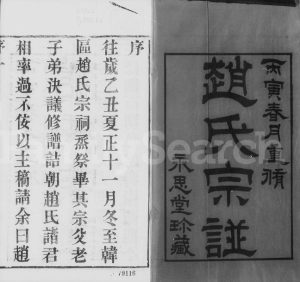 丙寅春月重脩
趙氏宗譜
不思堂珍藏
序
往歲乙丑夏正十一月冬至韓
區趙氏宗祠烝祭畢其宗父老
子弟決議修譜詰朝趙氏諸君
相率過不佞以主稿請余曰趙
序 一
19116